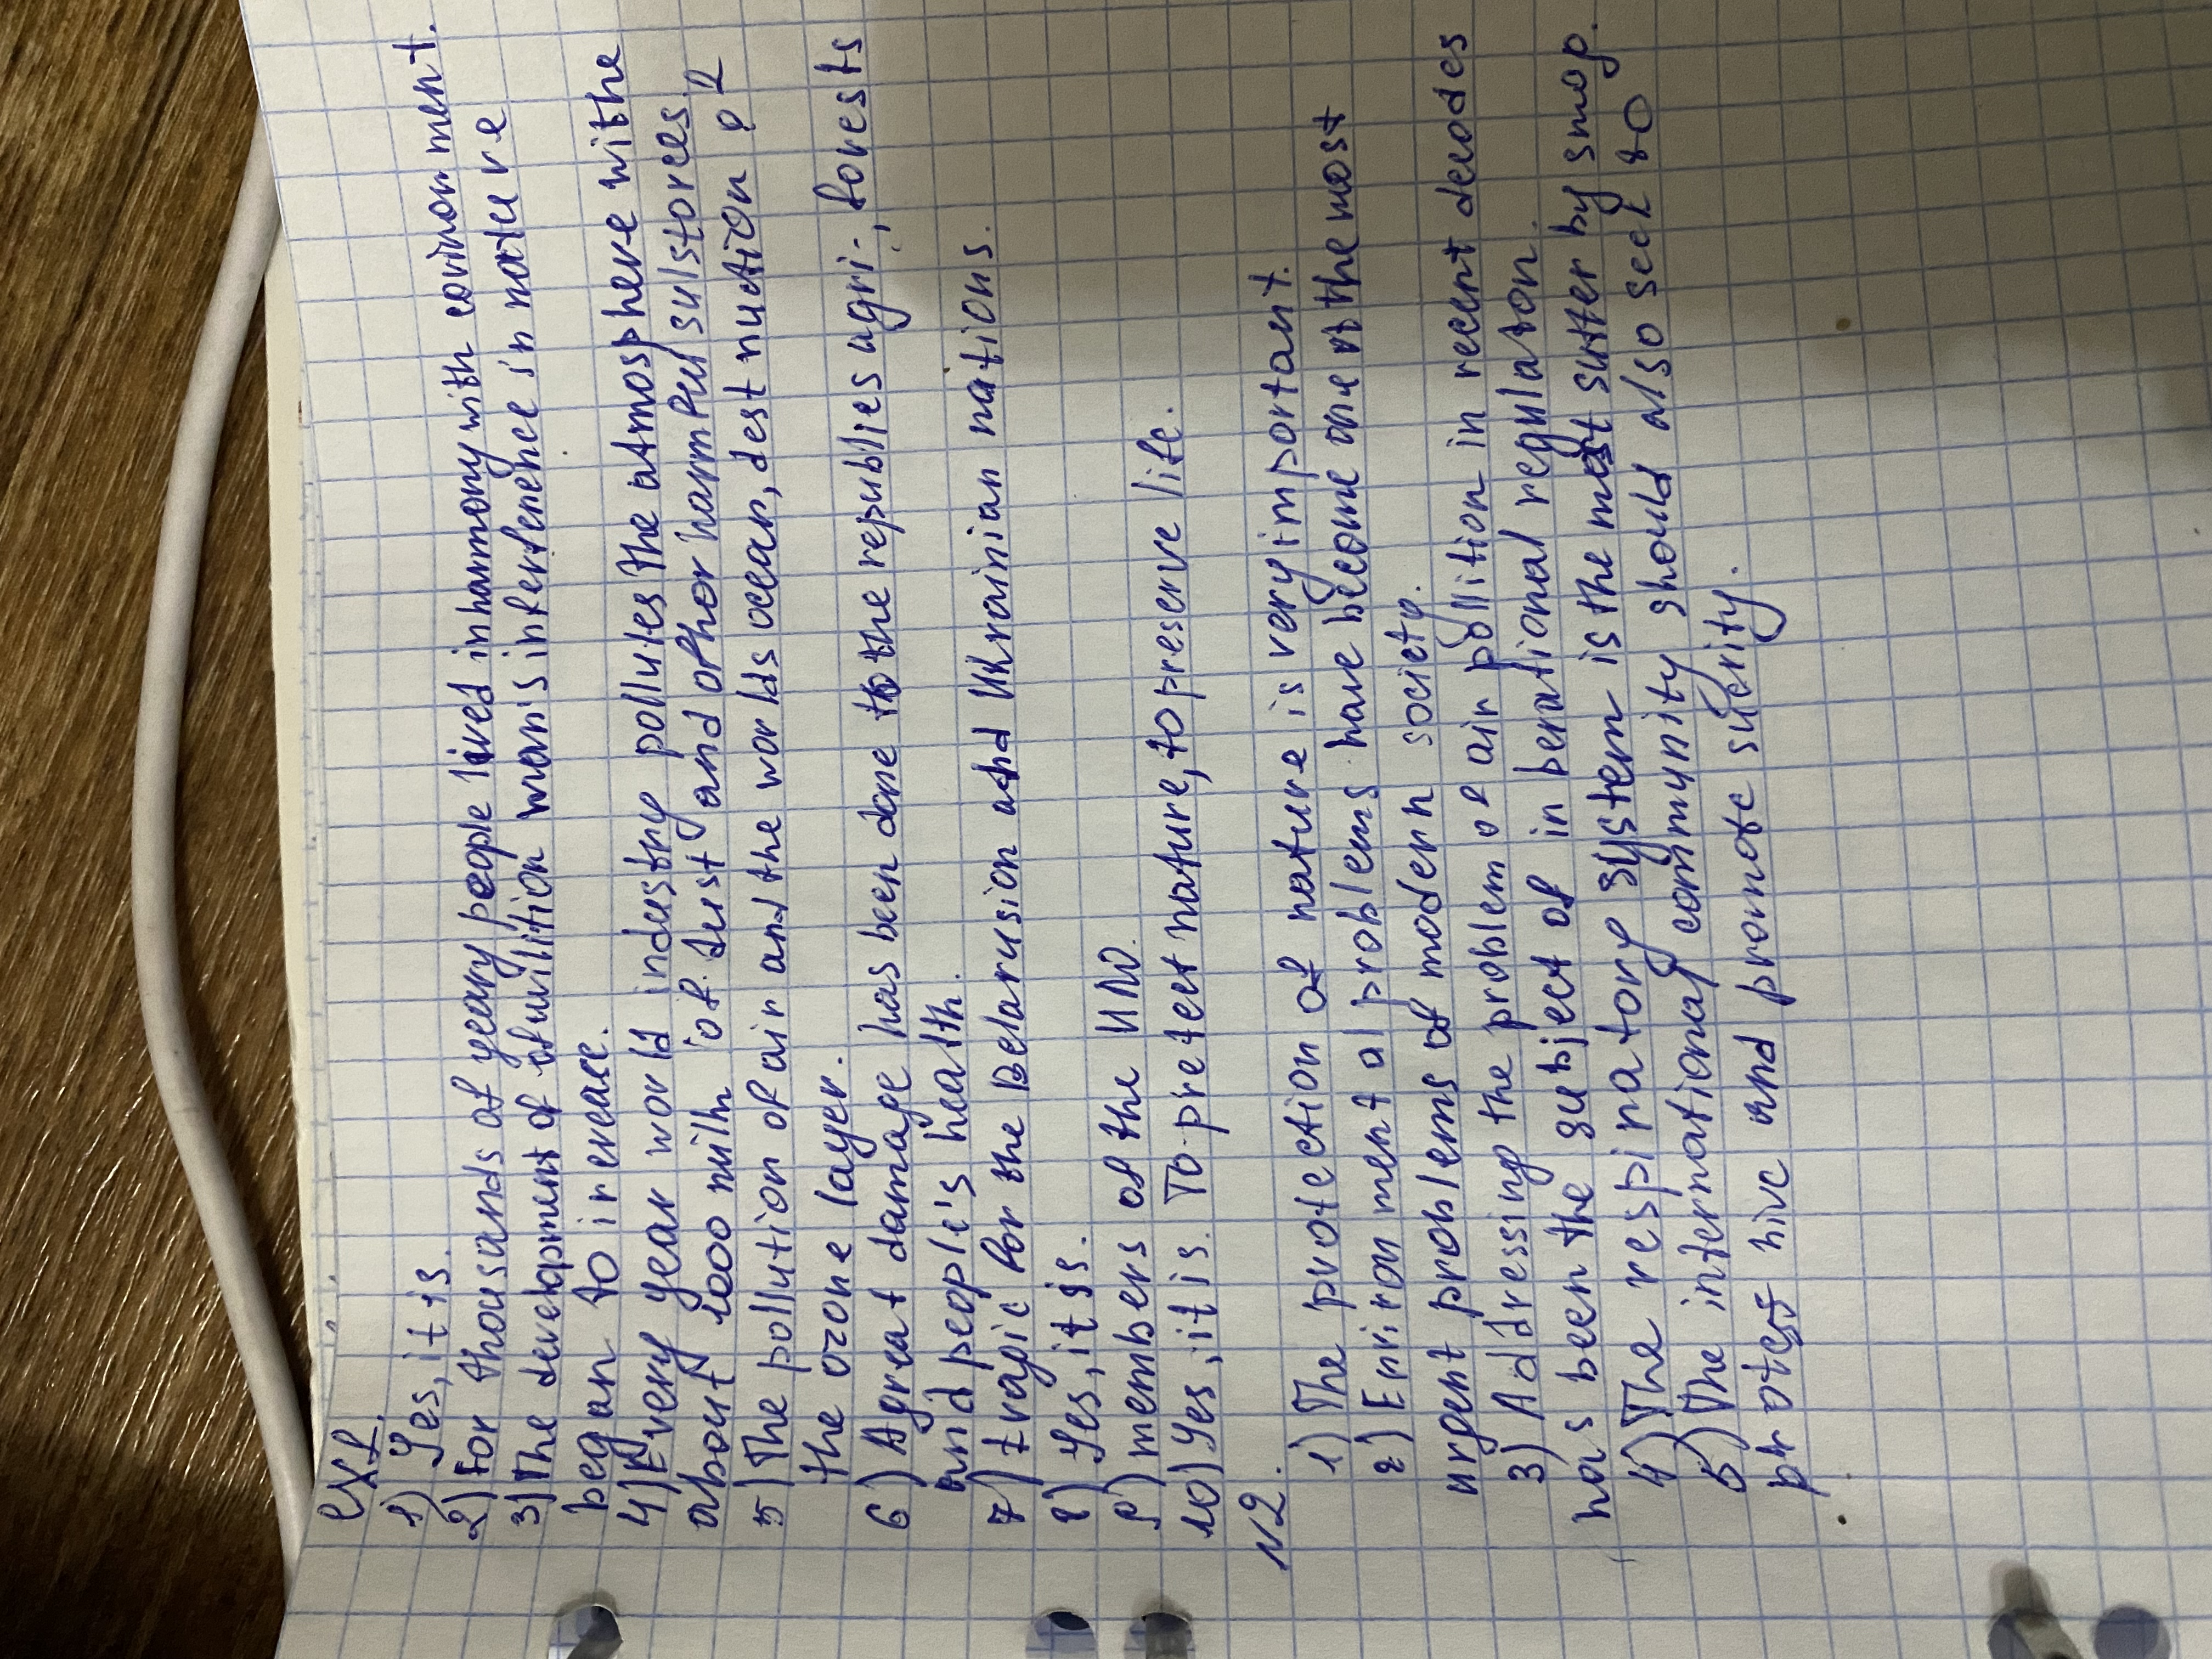 ex1.
1) Yes, it is.
2) For thousands of yeary people lived in harmony with environment.
3) The development of sivilition man's interference in nature
began to increace.
4) Every year world industry pollutes the atmosphere with the
about 1000 miln of dust and other harmful sulstores.
5) The pollution of air and the worlds ocean, destruction of
the ozone layer.
6) A great damage has been done to the republies agri-, forests
and people's health.
7) tragic for the Belarusion and Ukrainian nations.
8) Yes, it is.
9) members of the UN.
10) Yes, it is. To pretect nature, to preserve life.
N2.
1) The protection of nature is very important.
2) Environment al problems have become one of the most
urgent problems of modern society.
3) Addressing the problem of air pollition in recent decodes
has been the subject of inbernational regulaton.
4) The respiratory system is the most sutter by smog.
5) The international community should also seek to
and promote